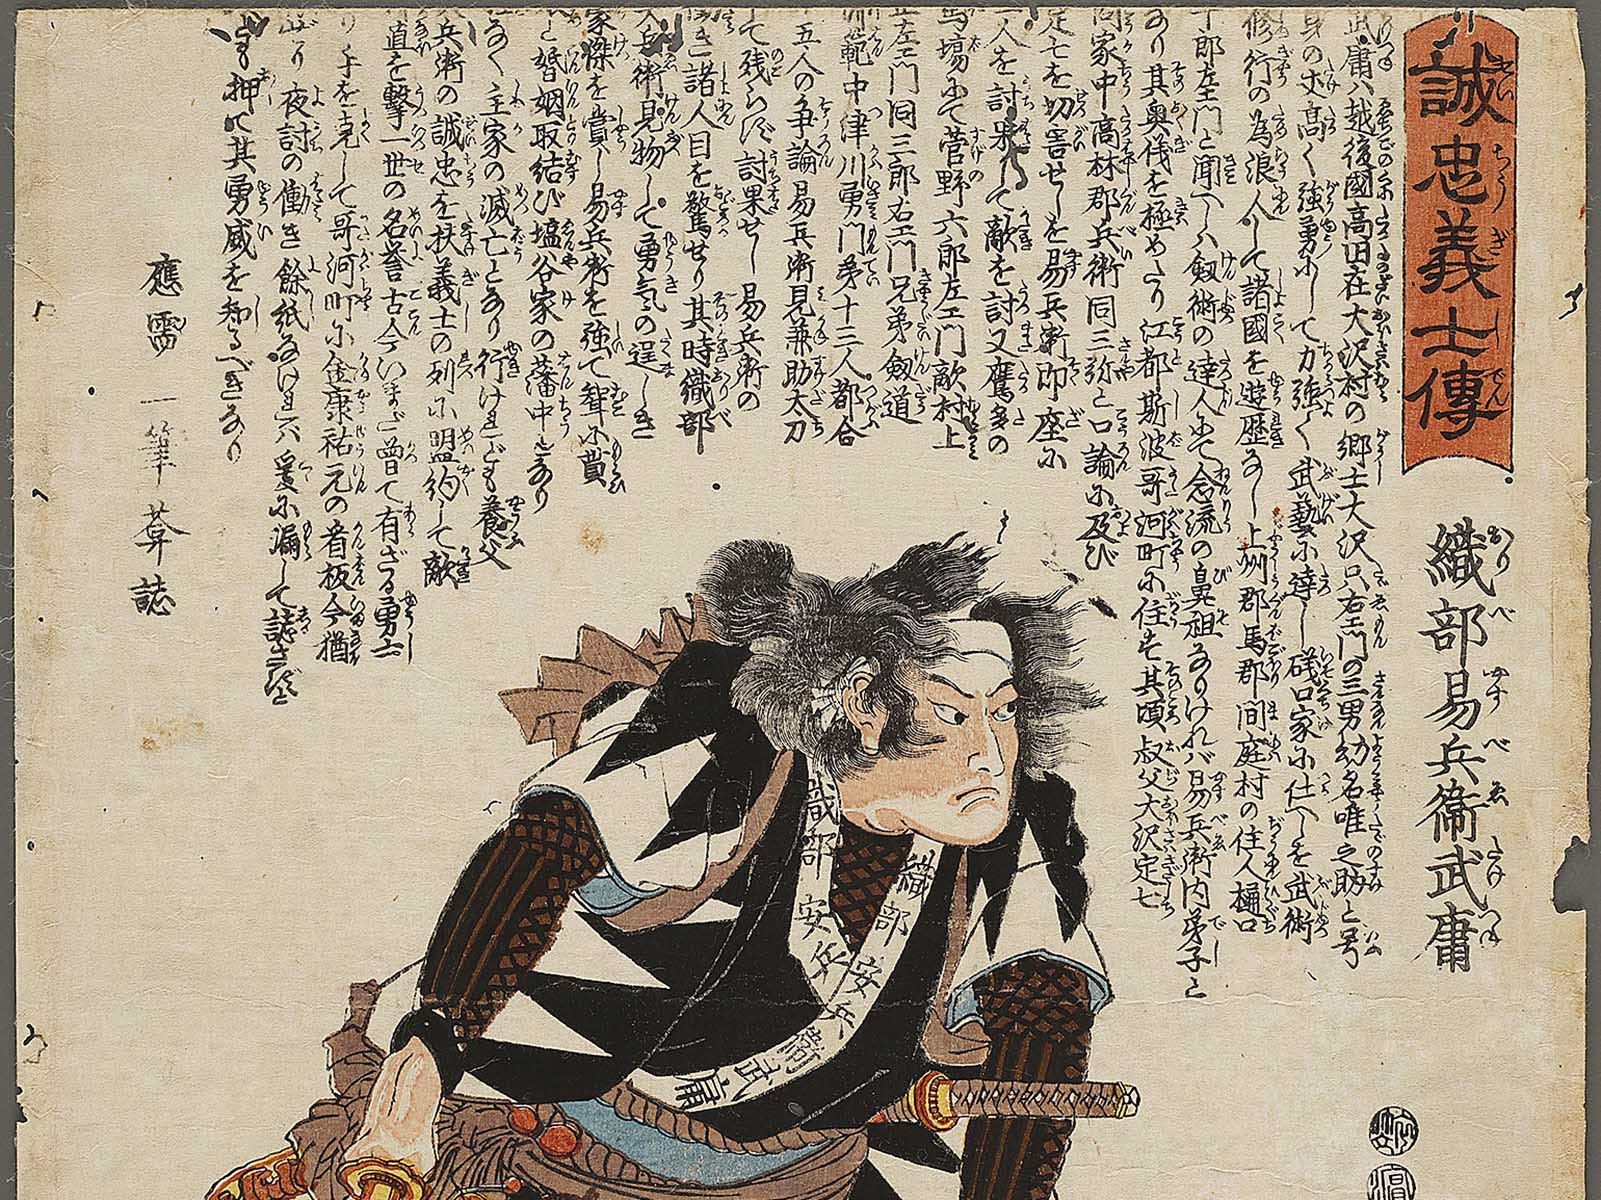 誠忠義士傳
織部易兵衞武庸
武庸八越後國高田在大沢村の郷士大沢只右エ門の三男幼名唯之助と号
身の丈髙く強勇にして力強く武藝に達し礒口家に仕へしを武術
修行の為浪人して諸國を遊歴なし上州郡馬郡間庭村の住人樋口
十郎左エ門と聞へしハ劔術の達人にて念流の鼻祖なりけれバ易兵衛内弟子と
あり其奥儀を極めたり江都斯波哥河町に住す其頃叔父大沢定七
同家中高林郡兵衛同三弥と口論に及び
定七を切害せしを易兵衛即座に
一人を討果して敵を討又鷹多の
馬場にて菅野六郎左エ門敵村上
庄左エ門同三郎右エ門兄弟劔道
師範中津川勇門弟十三人都合
十五人の争論易兵衛見兼助太刀
して残らず討果せし易兵衛の
働き諸人目を驚せり其時織部
矢兵衛見物して勇氣の逞しき
豪傑を賞し易兵衛を強て聟に貰
ひと婚姻取結び塩谷家の藩中となり
なく主家の滅亡となり行けれども養父
矢兵衛の誠忠を扶義士の列に盟約して敵
直を撃一世の名誉古今いまだ曽て有ざる勇士
り手を売して哥河町に金康祐元の看板今猶
あり夜討の働き餘紙なけれバ爰に漏して誌さず
とも押て其勇威を知るべきなり
應需 一筆葊誌
織部安兵
織部安兵衛武庸